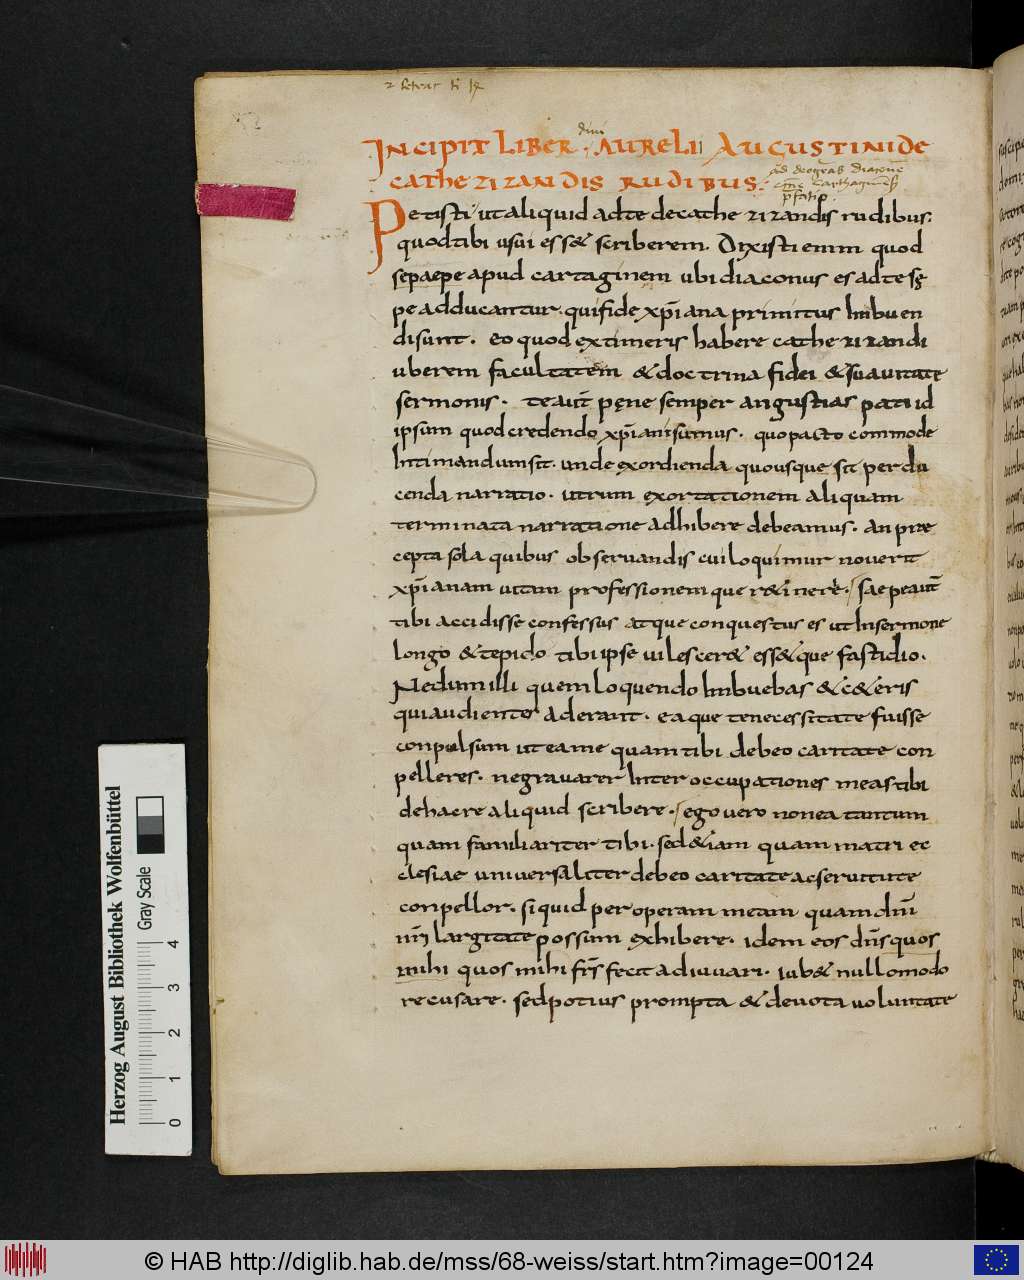 INCIPIT LIBER AURELII AUGUSTINI DE
diui
CATHEZIZANDIS RUDIBUS.
ad deogratiā diaconū
Petisti ut aliquid ad te decathezizandis rudibus.
quod tibi usui ess& scriberem. Dixisti enim quod
sepaepe apud cartaginem ubi diaconus es ad te sę
pe adducantur. qui fide xp̄iana primitus Imbuen
di sunt. eo quod extimeris habere cathezizandi
uberem facultatem & doctrina fidei & suauitate
sermonis. te aut̄ pęne semper angustias pati id
ipsum quod credendo xp̄iani sumus. quo pacto commode
Intimandum sit. unde exordienda quousque sit perdu
cenda narratio. utrum exortationem aliquam
terminata narratione adhibere debeamus. an prae
cepta sola quibus obseruandis cui loquimur nouerit
xp̄ianam uitam professionem que r&inere. saepe aut̄
tibi accidisse confessus atque conquestus es ut In sermone
longo & tepido tibi ipse uilescer& ess&que fastidio.
Nedum illi quem loquendo Imbuebas & c&eris
qui audiente aderant. ea que te necessitate fuisse
conpulsum ut ea me quam tibi debeo caritate con
pelleres. ne grauarer Inter occupationes meas tibi
de hac re aliquid scribere. ego uero non ea tantum
quam familiariter tibi. sed &iam quam matri ec
clesiae uniuersaliter debeo caritate ac seruitute
conpellor. si quid per operam meam quam dn̄i
nr̄i largitate possum exhibere. idem eos dn̄s quos
mihi quos mihi fr̄s fecit adiuuari. iub& nullo modo
recusare. sed potius prompta & deuota uoluntate
Herzog August Bibliothek Wolfenbüttel
Gray Scale
0 1 2 3 4
© HAB http://diglib.hab.de/mss/68-weiss/start.htm?image=00124